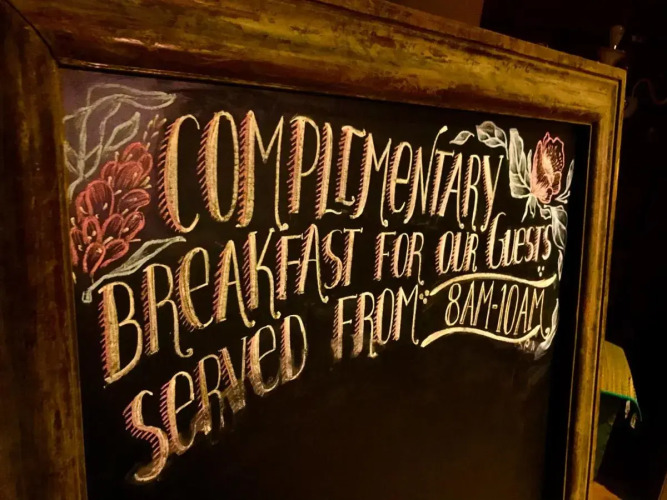 COMPLIMENTARY
BREAKFAST FOR OUR GUESTS
SERVED FROM 8AM-10AM